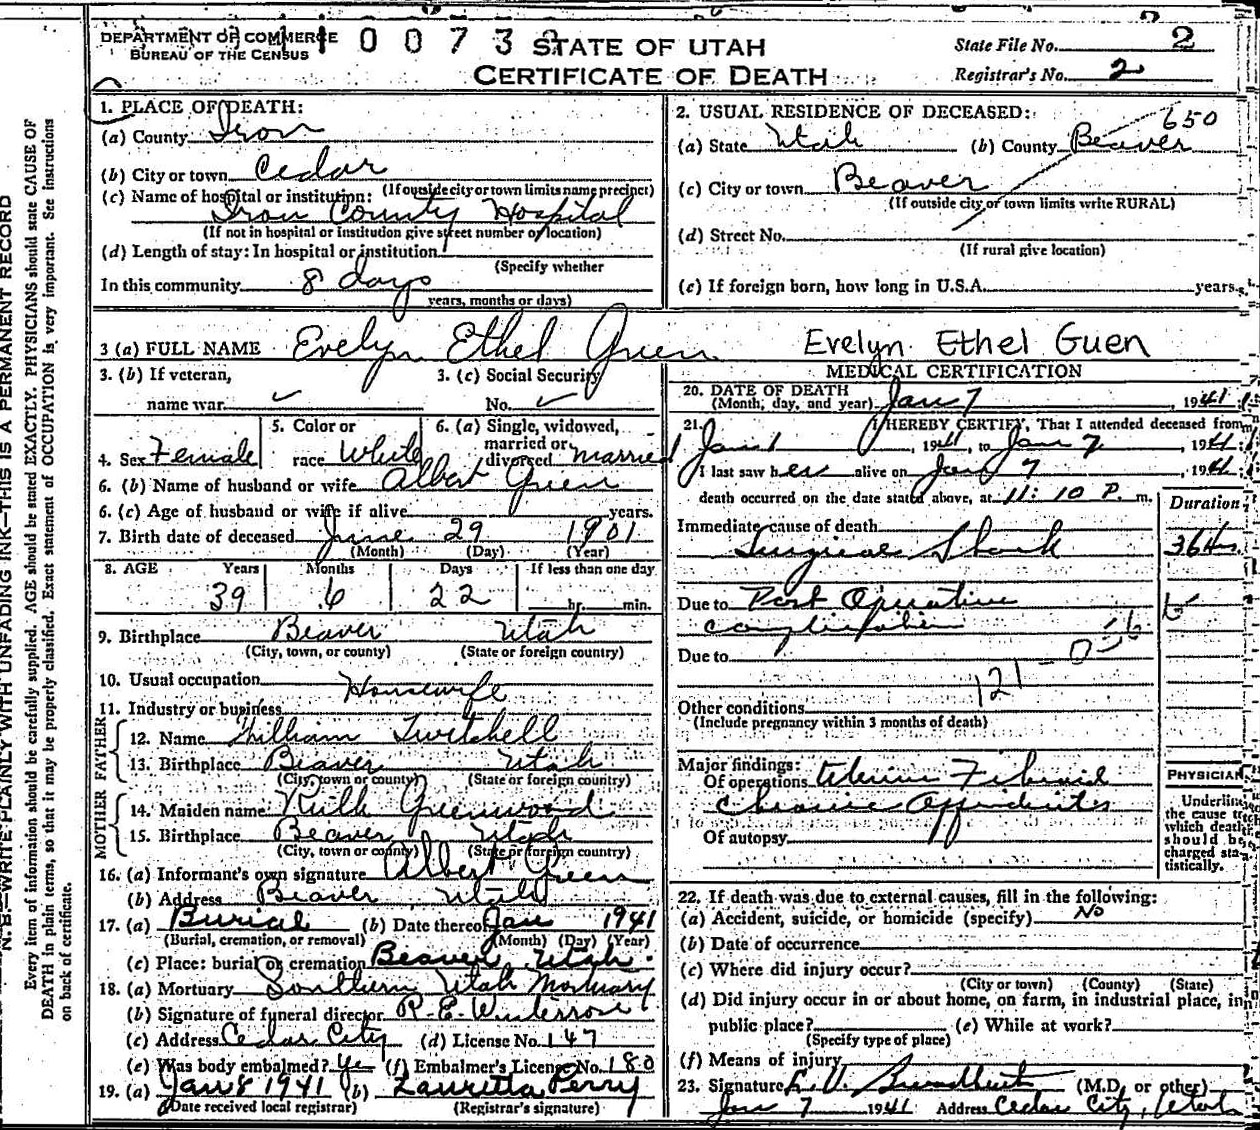 DEPARTMENT OF COMMERCE
BUREAU OF THE CENSUS
0 0 7 3
STATE OF UTAH
CERTIFICATE OF DEATH
State File No. 2
Registrar's No. 2
N.B.—WRITE PLAINLY WITH UNFADING INK—THIS IS A PERMANENT RECORD
Every item of information should be carefully supplied. AGE should be stated EXACTLY. PHYSICIANS should state CAUSE OF
DEATH in plain terms, so that it may be properly classified. Exact statement of OCCUPATION is very important. See instructions
on back of certificate.
1. PLACE OF DEATH:
(a) County Iron
(b) City or town Cedar
(If outside city or town limits name precinct)
(c) Name of hospital or institution:
Iron County Hospital
(If not in hospital or institution give street number or location)
(d) Length of stay: In hospital or institution
(Specify whether
In this community 8 days
years, months or days)
2. USUAL RESIDENCE OF DECEASED:
650
(a) State Utah (b) County Beaver
(c) City or town Beaver
(If outside city or town limits write RURAL)
(d) Street No.
(If rural give location)
(e) If foreign born, how long in U.S.A. years.
3 (a) FULL NAME Evelyn Ethel Green Evelyn Ethel Guen
3. (b) If veteran,
name war
3. (c) Social Security
No.
4. Sex Female
5. Color or
race White
6. (a) Single, widowed,
married or
divorced married
6. (b) Name of husband or wife Albert Green
6. (c) Age of husband or wife if alive years.
7. Birth date of deceased June 29 1901
(Month) (Day) (Year)
8. AGE Years Months Days If less than one day
39 6 22 hr. min.
9. Birthplace Beaver Utah
(City, town, or county) (State or foreign country)
10. Usual occupation Housewife
11. Industry or business
FATHER
12. Name William Twitchell
13. Birthplace Beaver Utah
(City, town or county) (State or foreign country)
MOTHER
14. Maiden name Ruth Greenwood
15. Birthplace Beaver Utah
(City, town or county) (State or foreign country)
16. (a) Informant's own signature Albert Green
(b) Address Beaver, Utah
17. (a) Burial (b) Date thereof Jan 1941
(Burial, cremation, or removal) (Month) (Day) (Year)
(c) Place: burial or cremation Beaver Utah.
18. (a) Mortuary Southern Utah Mortuary
(b) Signature of funeral director R. E.
(c) Address Cedar City (d) License No. 147
(e) Was body embalmed? Yes (f) Embalmer's License No. 180
19. (a) Jan 8 1941 (b) Lauretta Perry
(Date received local registrar) (Registrar's signature)
MEDICAL CERTIFICATION
20. DATE OF DEATH
(Month, day, and year) Jan 7, 1941
21. I HEREBY CERTIFY, That I attended deceased from
Jan 1, 1941, to Jan 7, 1941
I last saw her alive on Jan 7, 1941
death occurred on the date stated above, at 11:10 P. m.
Duration
Immediate cause of death
Surgical Shock 36 Hrs
Due to Post Operative
complication
Due to
121
Other conditions
(Include pregnancy within 3 months of death)
Major findings:
Of operations Uterine Fibroid
Chronic Appendicitis
Of autopsy
PHYSICIAN
Underline
the cause to
which death
should be
charged sta-
tistically.
22. If death was due to external causes, fill in the following:
(a) Accident, suicide, or homicide (specify) No
(b) Date of occurrence
(c) Where did injury occur?
(City or town) (County) (State)
(d) Did injury occur in or about home, on farm, in industrial place, in
public place? (e) While at work?
(Specify type of place)
(f) Means of injury
23. Signature (M.D. or other)
Jan 7 1941 Address Cedar City, Utah